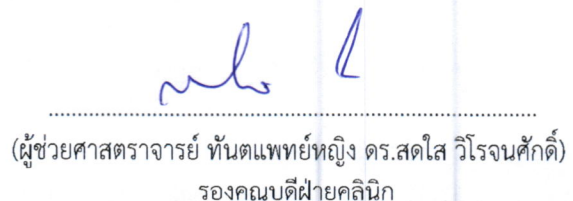 (ผู้ช่วยศาสตราจารย์ ทันตแพทย์หญิง ดร.สดใส วิโรจนศักดิ์)
รองคณบดีฝ่ายคลินิก